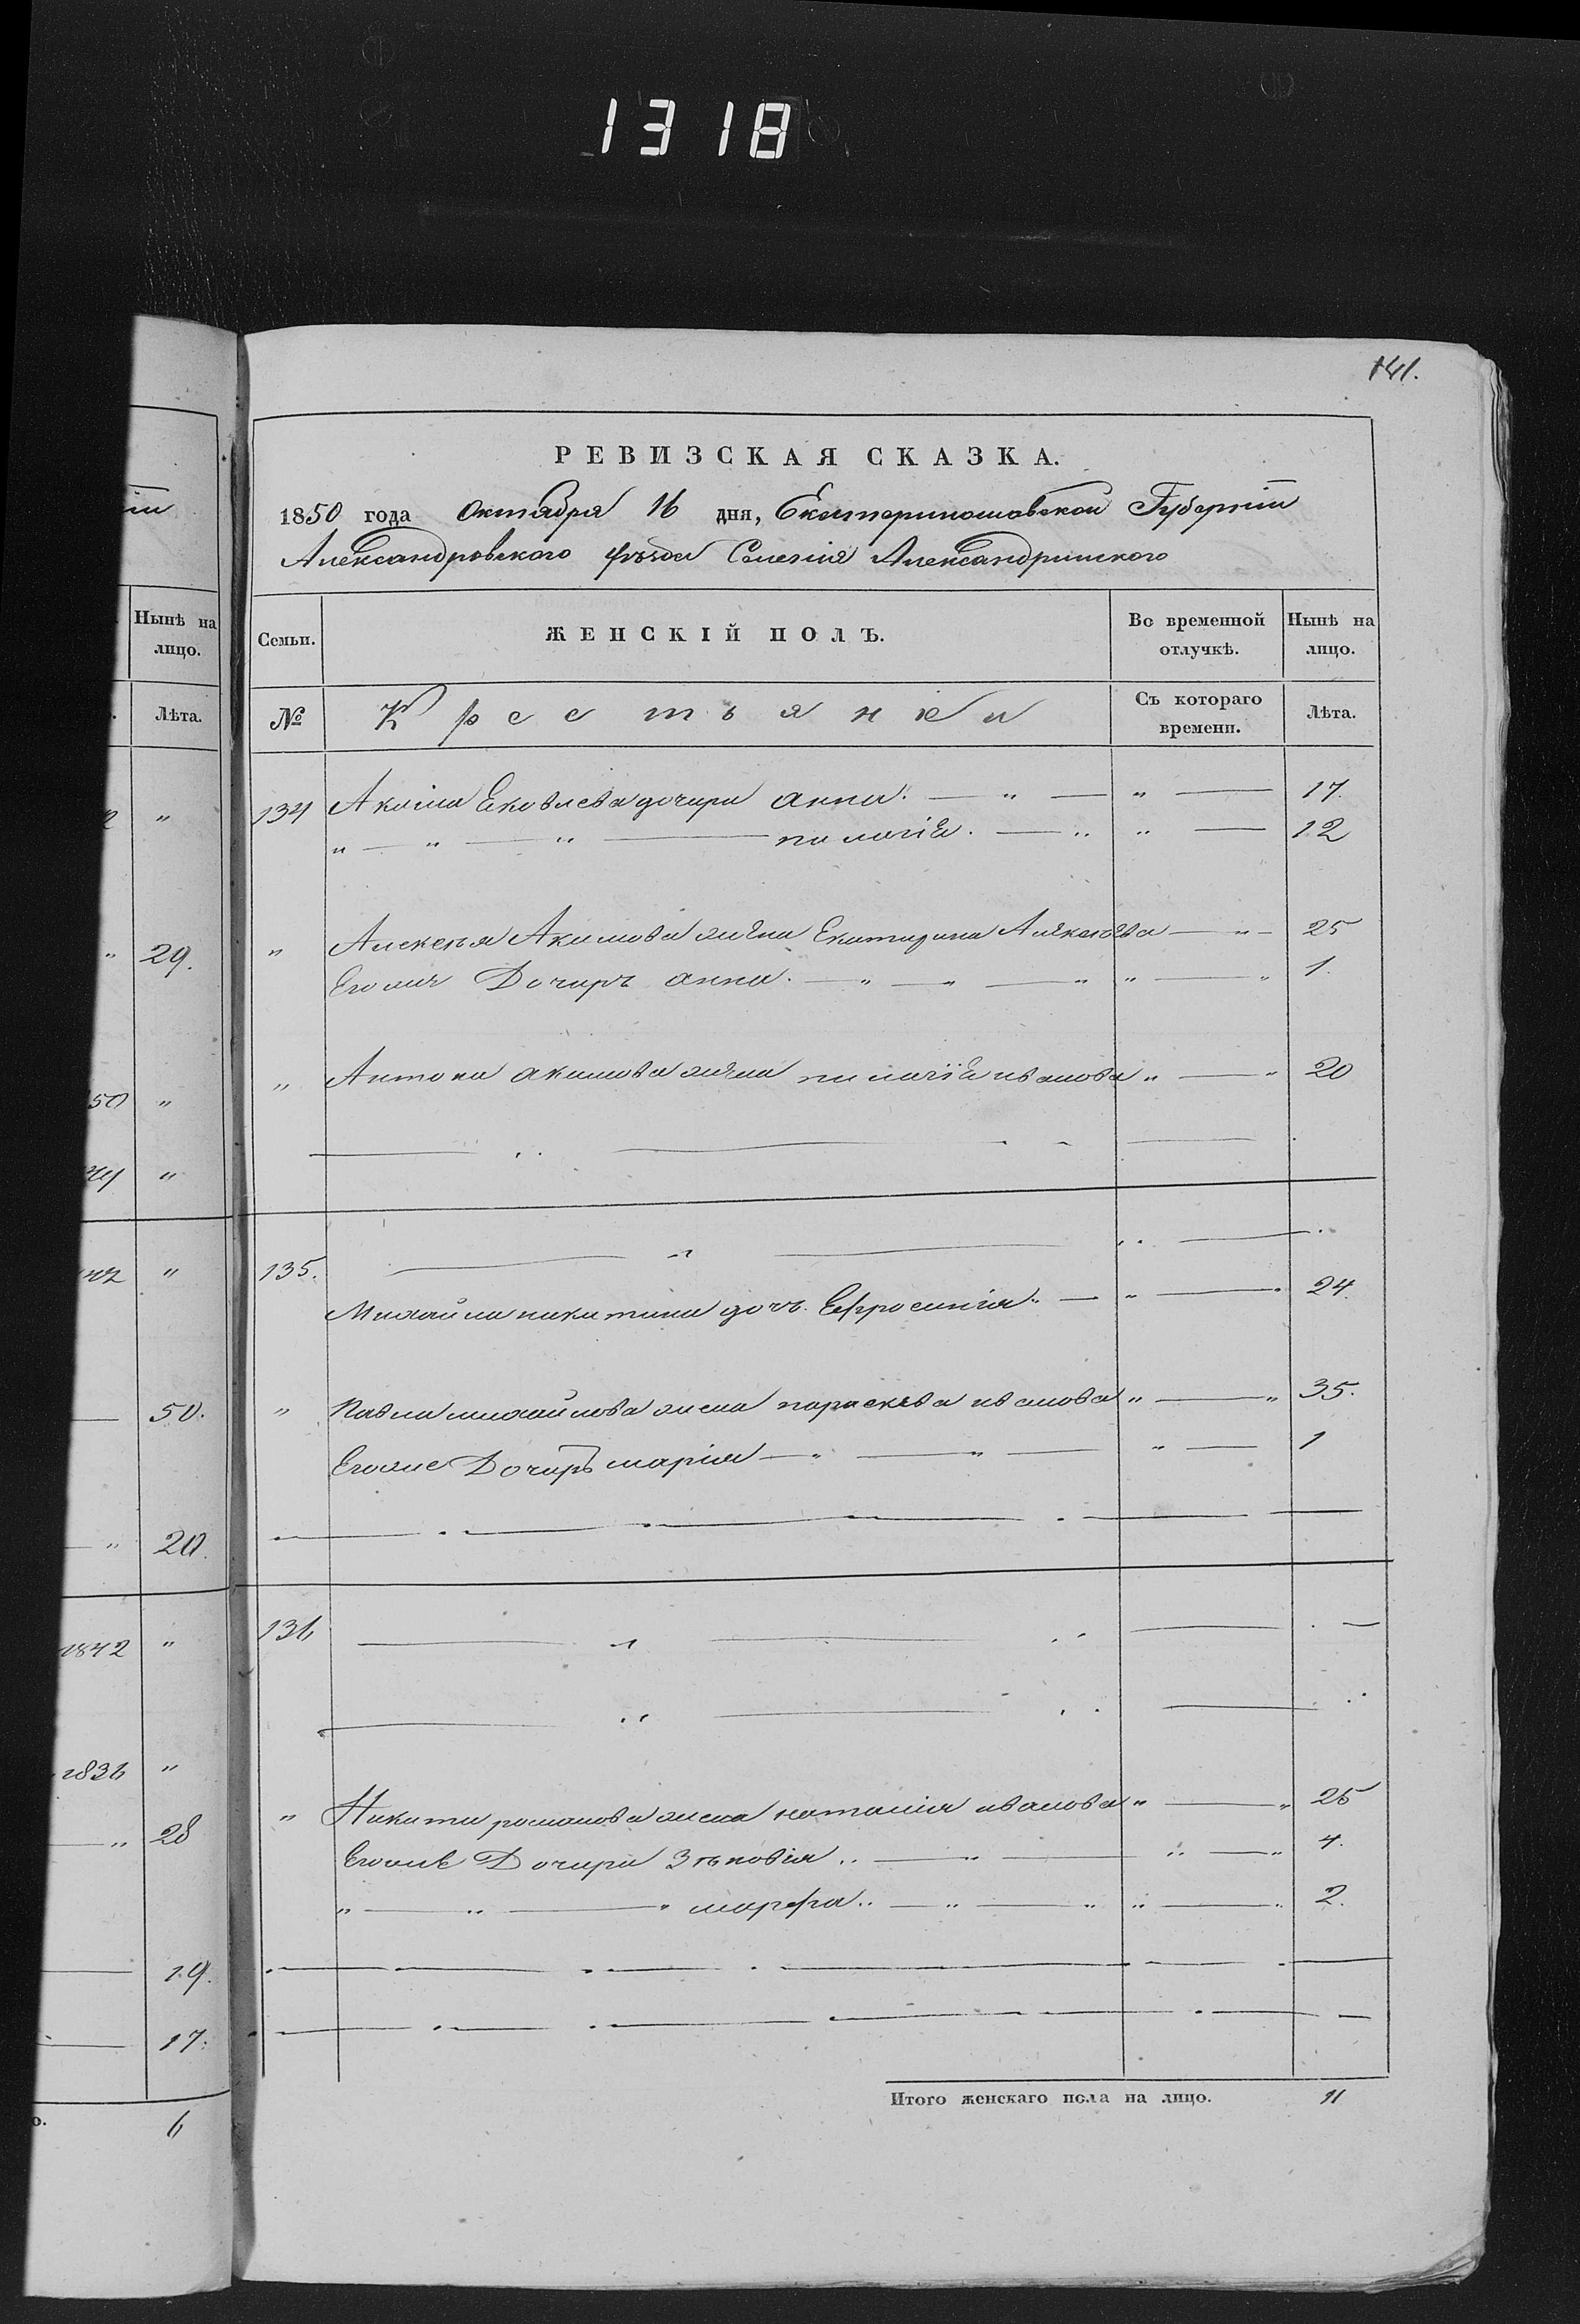 1318
141.
РЕВИЗСКАЯ СКАЗКА.
1850 года Октября 16 дня, Екатеринославской Губерніи
Александровского уѣзда Селенія Александринского
Нынѣ на лицо.
Лѣта.
Семьи. ЖЕНСКІЙ ПОЛЪ. Во временной отлучкѣ. Нынѣ на лицо.
№ Крестьянки Съ котораго времени. Лѣта.
134 Акима Яковлева дочери анна. — " — " — 17.
" — " — " — пилагія. — " " — 12
" 29.
" Алексѣя Акимова жена Екатирина Алексѣева — " — 25
Егоже Дочиръ анна. — " — " — " " — " 1.
50 "
" Антона акимова жена пилагія иванова " — " 20
"
" 135.
Михайла никитина дочъ Ефросинія. — " — 24.
50.
" Павла михайлова жена параскева иванова " — " 35.
Егоже Дочиръ марія — " — " — " — 1
20.
1842 " 136
1836 "
" 28
" Никиты романова жена наталия иванова " — " 25
Егоже Дочири Зѣновія " — " — " — " 4.
" — " — " марфа " — " — " " — " 2.
19.
17.
6
Итого женскаго пола на лицо. 11